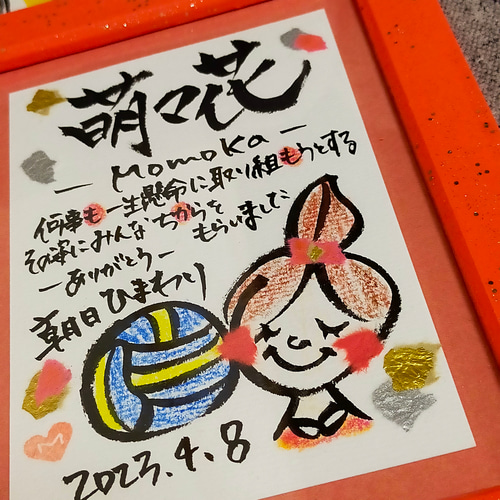 萌々花
— Momoka —
何事も一生懸命に取り組もうとする
その姿にみんなちからを
もらいました
— ありがとう —
朝日ひまわり
M
2023.4.8